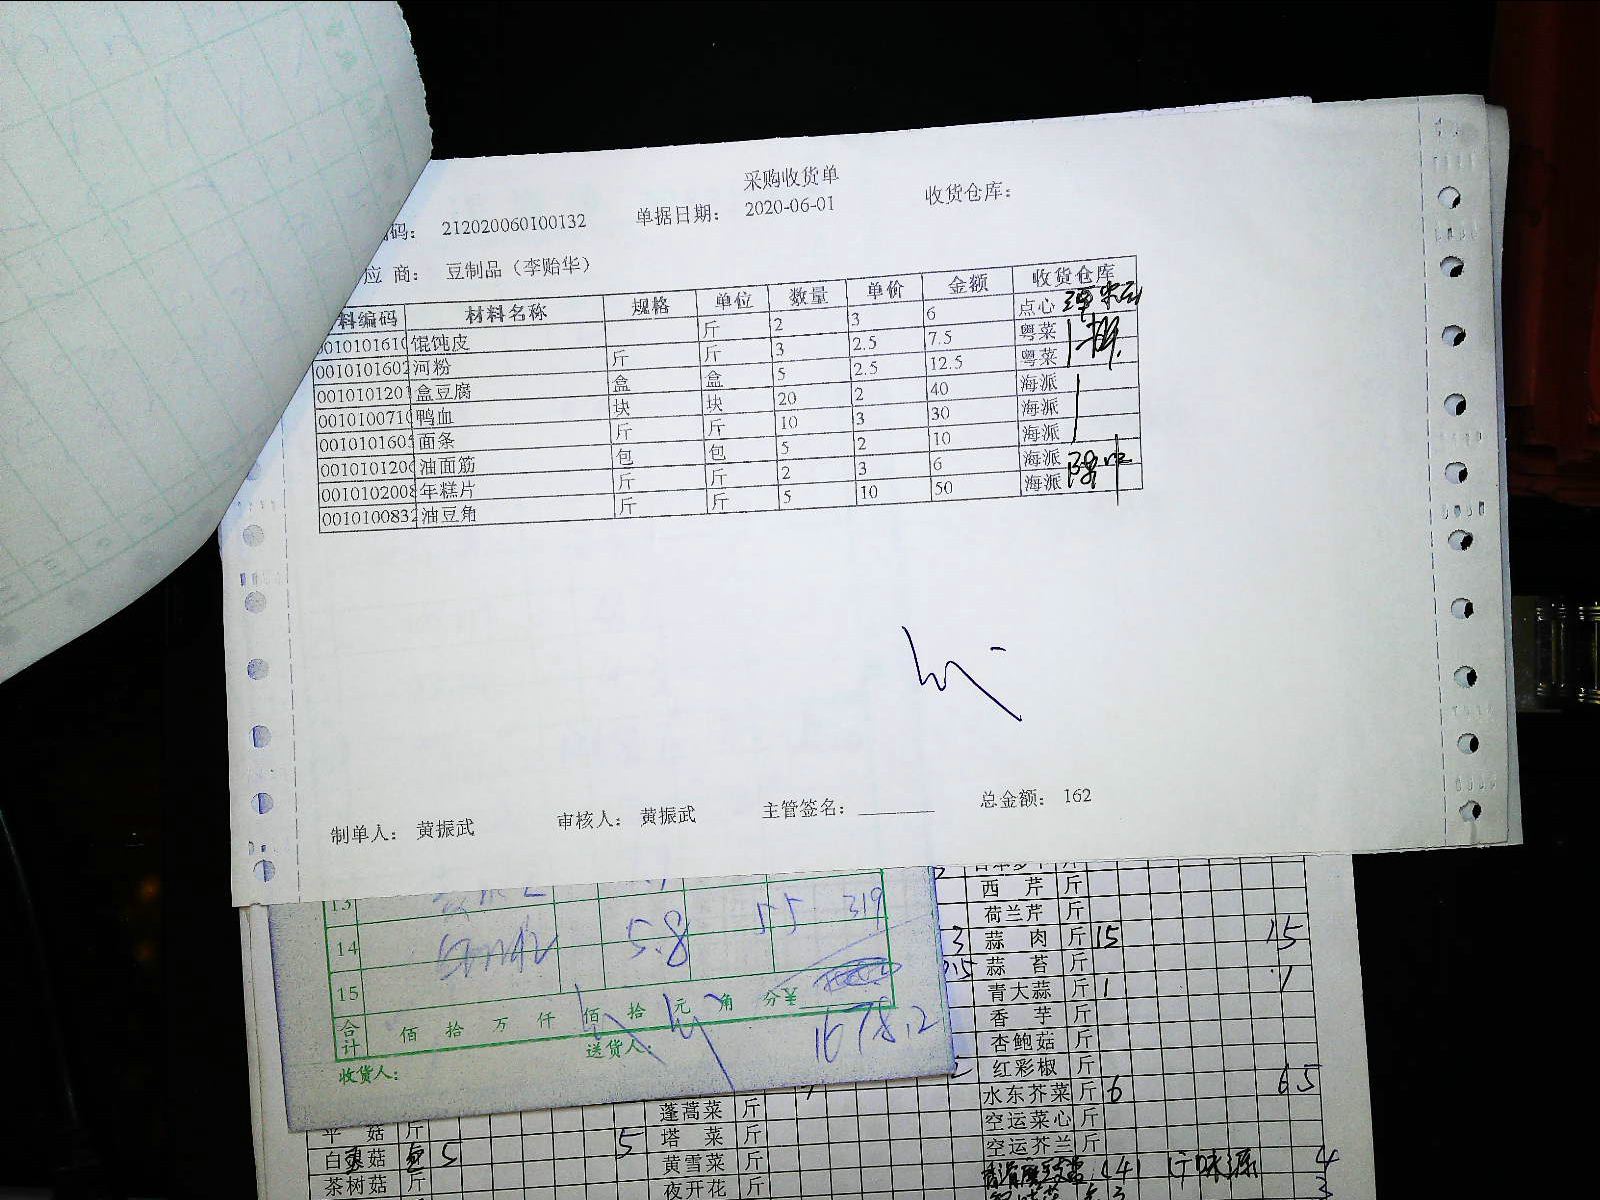 采购收货单
码： 212020060100132 单据日期： 2020-06-01 收货仓库：
应 商： 豆制品（李贻华）
料编码 材料名称 规格 单位 数量 单价 金额 收货仓库
0010101610 馄饨皮 斤 2 3 6 点心
0010101602 河粉 斤 斤 3 2.5 7.5 粤菜
0010101201 盒豆腐 盒 盒 5 2.5 12.5 粤菜
0010100710 鸭血 块 块 20 2 40 海派
0010101605 面条 斤 斤 10 3 30 海派
0010101206 油面筋 包 包 5 2 10 海派
0010102008 年糕片 斤 斤 2 3 6 海派
0010100832 油豆角 斤 斤 5 10 50 海派
制单人： 黄振武 审核人： 黄振武 主管签名： 总金额： 162
13
14 5.8 55 319
15
合计 佰 拾 万 仟 佰 拾 元 角 分 ¥ 1678.2
收货人： 送货人：
西 芹 斤
荷兰芹 斤
3 蒜 肉 斤 15 15
蒜 苔 斤
青大蒜 斤 1 1
香 芋 斤
杏鲍菇 斤
红彩椒 斤
水东芥菜 斤 6 65
蓬蒿菜 斤 空运菜心 斤
平 菇 斤 塔 菜 斤 空运芥兰 斤
白 菇 5 5 黄雪菜 斤 4
茶树菇 斤 夜开花 斤 3